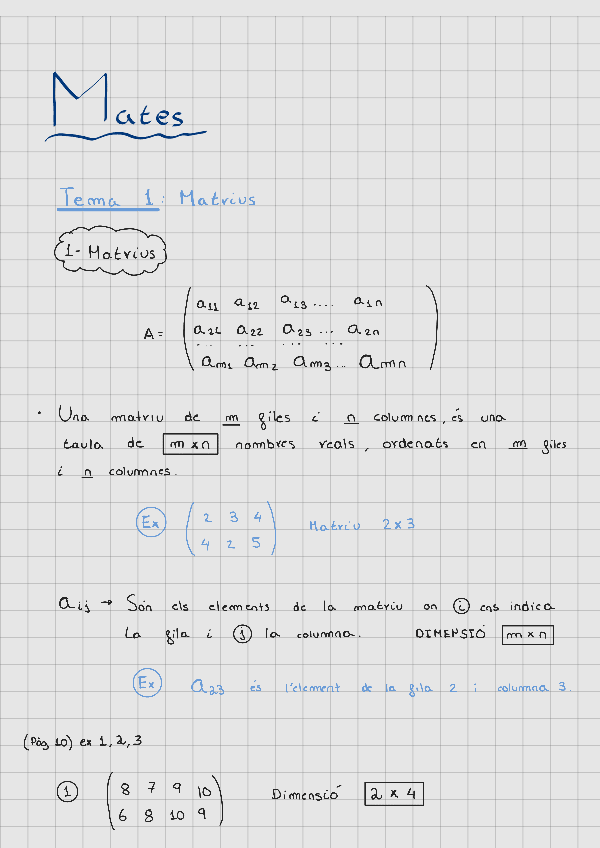 Mates
Tema 1: Matrius
1- Matrius
a11 a12 a13 .... a1n
A= a21 a22 a23 ... a2n
... ... ... ...
am1 am2 am3 ... amn
· Una matriu de m files i n columnes, és una
taula de m x n nombres reals, ordenats en m files
i n columnes.
Ex 2 3 4 Matriu 2x3
4 2 5
aij → Són els elements de la matriu on i ens indica
la fila i j la columna. DIMENSIÓ m x n
Ex a23 és l'element de la fila 2 i columna 3.
(Pàg 10) ex 1, 2, 3
1 8 7 9 10 Dimensió 2 x 4
6 8 10 9